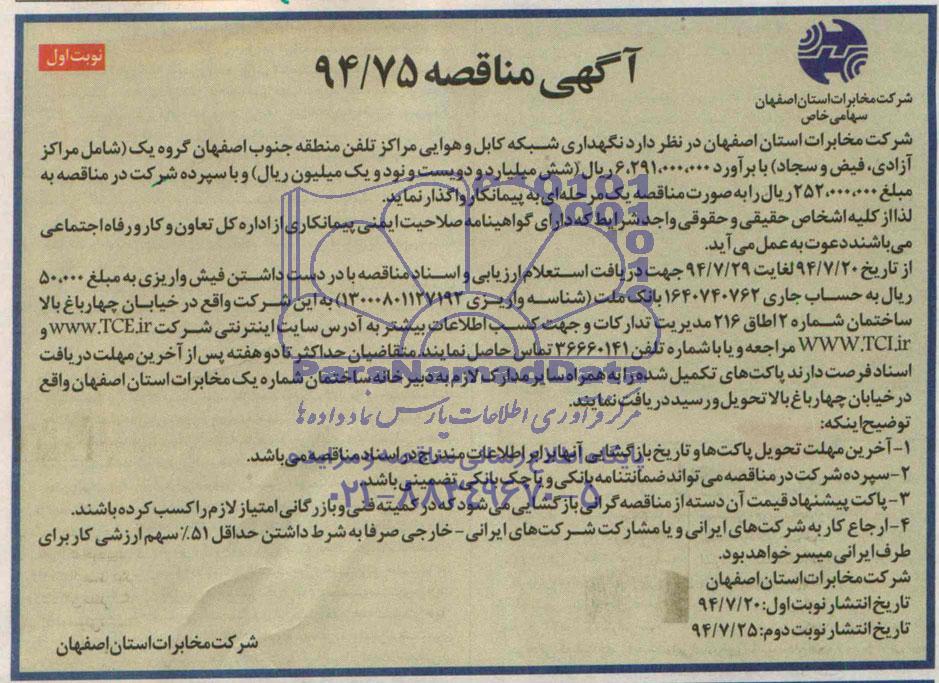 نوبت اول
آگهی مناقصه ۹۴/۷۵
شرکت مخابرات استان اصفهان
سهامی خاص
شرکت مخابرات استان اصفهان در نظر دارد نگهداری شبکه کابل و هوایی مراکز تلفن منطقه جنوب اصفهان گروه یک (شامل مراکز
آزادی، فیض و سجاد) با برآورد ۶،۲۹۱،۰۰۰،۰۰۰ ریال (شش میلیارد و دویست و نود و یک میلیون ریال) و با سپرده شرکت در مناقصه به
مبلغ ۲۵۲،۰۰۰،۰۰۰ ریال را به صورت مناقصه یک مرحله‌ای به پیمانکار واگذار نماید.
لذا از کلیه اشخاص حقیقی و حقوقی واجد شرایط که دارای گواهینامه صلاحیت ایمنی پیمانکاری از اداره کل تعاون و کار و رفاه اجتماعی
می‌باشند دعوت به عمل می‌آید.
از تاریخ ۹۴/۷/۲۰ لغایت ۹۴/۷/۲۹ جهت دریافت استعلام ارزیابی و اسناد مناقصه با در دست داشتن فیش واریزی به مبلغ ۵۰،۰۰۰
ریال به حساب جاری ۱۶۴۰۷۴۰۷۶۲ بانک ملت (شناسه واریزی ۱۳۰۰۰۸۰۱۱۲۷۱۹۲) به این شرکت واقع در خیابان چهارباغ بالا
ساختمان شماره ۲ اطاق ۲۱۶ مدیریت تدارکات و جهت کسب اطلاعات بیشتر به آدرس سایت اینترنتی شرکت WWW.TCE.ir و
WWW.TCI.ir مراجعه و یا با شماره تلفن ۳۶۶۶۰۱۴۱ تماس حاصل نمایند. متقاضیان حداکثر تا دو هفته پس از آخرین مهلت دریافت
اسناد فرصت دارند پاکت‌های تکمیل شده را به همراه سایر مدارک لازم به دبیرخانه ساختمان شماره یک مخابرات استان اصفهان واقع
در خیابان چهارباغ بالا تحویل و رسید دریافت نمایند.
توضیح اینکه:
۱- آخرین مهلت تحویل پاکت‌ها و تاریخ بازگشایی آنها برابر اطلاعات مندرج در اسناد مناقصه می‌باشد.
۲- سپرده شرکت در مناقصه می‌تواند ضمانتنامه بانکی و یا چک بانکی تضمینی باشد.
۳- پاکت پیشنهاد قیمت آن دسته از مناقصه گرانی بازگشایی می‌شود که در کمیته فنی و بازرگانی امتیاز لازم را کسب کرده باشند.
۴- ارجاع کار به شرکت‌های ایرانی و یا مشارکت شرکت‌های ایرانی - خارجی صرفا به شرط داشتن حداقل ۵۱٪ سهم ارزشی کار برای
طرف ایرانی میسر خواهد بود.
شرکت مخابرات استان اصفهان
تاریخ انتشار نوبت اول: ۹۴/۷/۲۰
تاریخ انتشار نوبت دوم: ۹۴/۷/۲۵
شرکت مخابرات استان اصفهان
ParsNamadData
مرکز فرآوری اطلاعات پارس نماد داده‌ها
پایگاه اطلاع رسانی مناقصه و مزایده
۰۲۱-۸۸۳۴۹۶۷۰-۵